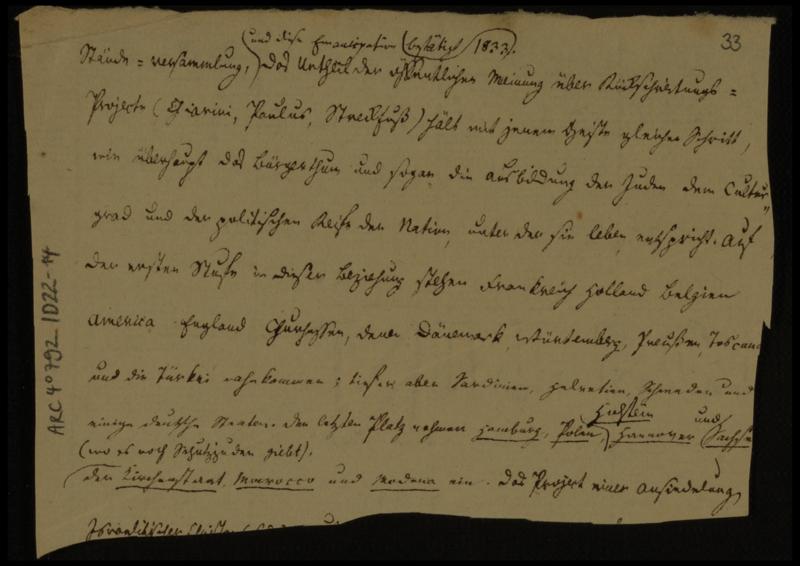 33
(und diese Emancipation (bestätigt 1833).
Stände-versammlung,) das Urtheil der öffentlichen Meinung über Rückschreitungs-
Projecte (Chiarini, Paulus, Streckfuß) hält mit jenem Geiste gleichen Schritt,
wie überhaupt das Bürgerthum und sogar die Ausbildung der Juden dem Cultur-
grad und der politischen Reife der Nation, unter der sie leben, entspricht. Auf
der ersten Stufe in dieser Beziehung stehen Frankreich Holland Belgien
America England Churhessen, denen Dänemark, Würtemberg, Preußen, Toscana
und die Türkei nahekommen; tiefer aber Sardinien, Helvetien, Schweden und
einige deutsche Staaten. Den letzten Platz nehmen Hamburg, Polen, Hannover Sachsen
Holstein und
(wo es noch Schutzjuden giebt).
den Kirchenstaat, Marocco und Modena ein. Das Project einer Ansiedelung
Israelitischer
ARC 4° 792 / D22-14